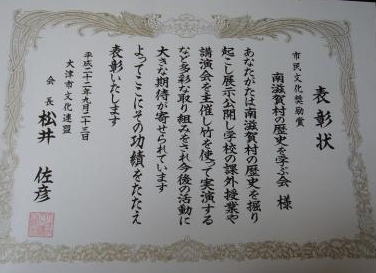 表彰状
市民文化奨励賞
南滋賀村の歴史を学ぶ会 様
あなたがたは南滋賀村の歴史を掘り
起こし展示公開し学校の課外授業や
講演会を主催し竹を使って実演する
など多彩な取り組みをされ今後の活動に
大きな期待が寄せられています
よってここにその功績をたたえ
表彰いたします
平成二十二年九月二十三日
大津市文化連盟
会長 松井 佐彦